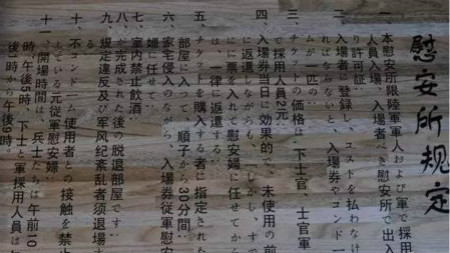 慰安所规定
一、本慰安所限陸軍軍人および軍で採用
人員入場、入場者べき慰安所で出入
り許可証
二、入場者に登録し、コストを払わなけ
ればならないと、入場券やコンドー
ムが一匹の:
三、チケットの価格は、下士官、士官軍
で採用人員2元:
四、入場券当日に効果的で、未使用の前
に返還しながらも、しかし、すで
にに票を入れて慰安婦に任せてから
は一律に返還する:
五、チケットを購入する者に指定された
部屋に入って、順子から30分間:
六、家宅侵入のながら、入場券従軍慰安
婦に任せて
七、室内禁止飲酒
八、に完成された後の脱退部屋です:
九、規定違反及び军风纪紊乱者须退場
十、不コンドーム使用者らの接触を禁止
している元従軍慰安婦
十一、開場時間は、兵士たちは午前10
時~午後5時、下士と軍採用人員は
後1時から午後9時